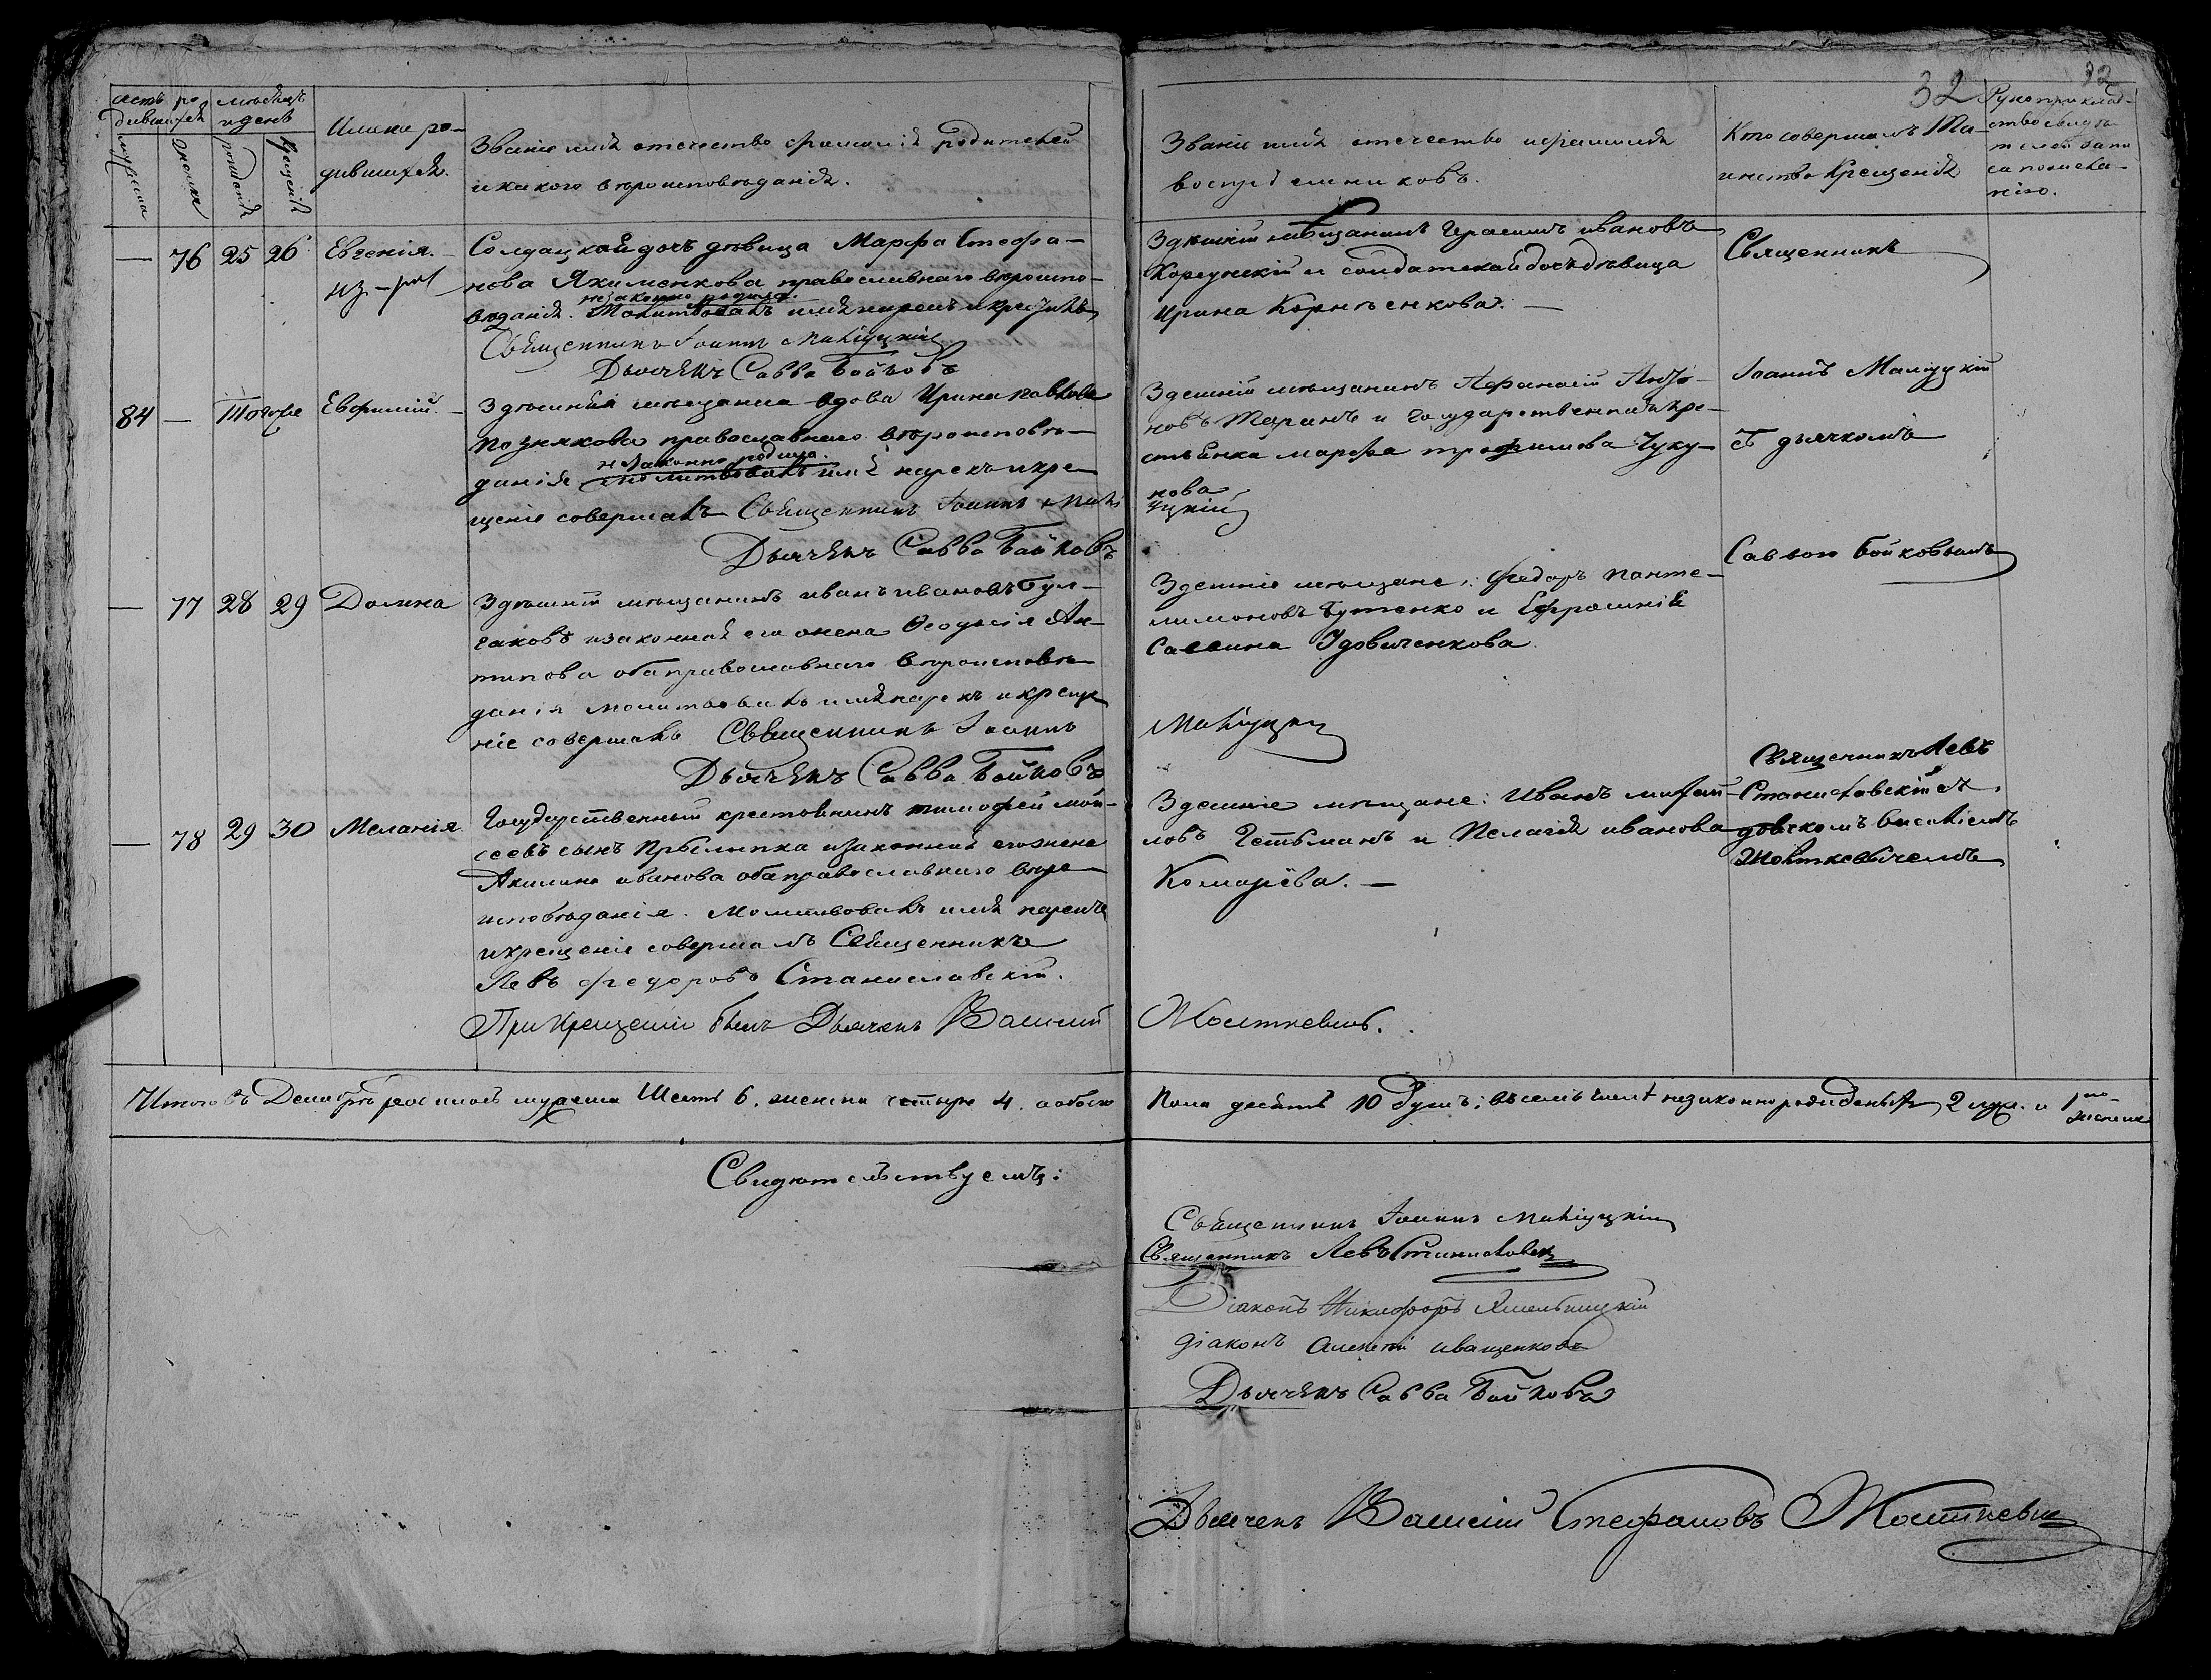 32
Счетъ ро-
дившихся
мѣсяцъ
и день
мужеска
женска
рожденія
крещенія
Имена ро-
дившихся.
Званіе имя отечество фамилія родителей
и какого вѣроисповѣданія.
Званіе имя отечество и фамилія
воспріемниковъ.
Кто совершалъ Та-
инство Крещенія
Рукоприклад-
ство свидѣ-
телей запи
си по жела-
нію.
— 76 25 26 Евгенія.
нз-род
Солдацкая дочь дѣвица Марфа Стефа-
нова Якименкова православнаго вѣроиспо-
незаконно родила.
вѣданія. Молитвовалъ имя нарекъ и крестилъ
Священникъ Іоаннъ Маліуцкій
Дьячекъ Савва Бойковъ
Здѣшній мѣщанинъ Герасимъ ивановъ
Корсунскій и солдатская дочь дѣвица
Ирина Корнѣенкова. —
Священникъ
84 — Тогоже Евфимій. —
Здѣшняя мѣщанка вдова Ирина павлова
Познякова православнаго вѣроисповѣ-
незаконно родила.
данія молитвовалъ имя нарекъ и кре-
щеніе совершалъ Священникъ Іоаннъ Малі
уцкій
Дьячекъ Савва Бойковъ
Здешній мѣщанинъ Афанасій Анто-
новъ Таранъ и государственная кре-
стьянка марфа трофимова Чуку-
нова
Іоаннъ Маліуцкій
съ дьячкомъ
Саввою Бойковымъ
— 77 28 29 Домна
Здѣшній мѣщанинъ иванъ ивановъ Бул-
гаковъ и законная его жена Ѳеодосія Ан-
типова оба православнаго вѣроисповѣ-
данія молитвовалъ имя нарекъ и креще
ніе совершалъ Священникъ Іоаннъ
Маліуцкій
Дьячекъ Савва Бойковъ
Здешніе мѣщане: Федоръ панте-
лимоновъ Бутенко и Ефросинія
Саввина Удовиченкова.
— 78 29 30 Меланія
Государственный крестьянинъ тимофей мои-
сеевъ сынъ Прылипка и законная его жена
Акилина иванова оба православнаго вѣро-
исповѣданія. Молитвовалъ имя нарекъ
и крещеніе совершалъ Священникъ
Левъ федоровъ Станиславскій.
При Крещеніи былъ Дьячекъ Василій
Жолткевичъ.
Здешніе мѣщане: Иванъ михай-
ловъ Гетьманъ и Пелагія иванова
Комарева. —
Священникъ Левъ
Станиславскій съ
дьячкомъ Василіемъ
Жолткевичемъ
Итого въ Декабрѣ родилось мужеска Шесть 6. женска четыре 4. а обоего
пола десять 10 душъ; въ семъ числѣ незаконнорожденыхъ 2 муж. и 1 но
женска
Свидѣтельствуемъ:
Священникъ Іоаннъ Маліуцкій
Священникъ Левъ Станиславскій
Діаконъ Никифоръ
діаконъ Алексѣй иващенковъ
Дьячекъ Савва Бойковъ
Дьячекъ Василій Стефановъ Жолткевичъ